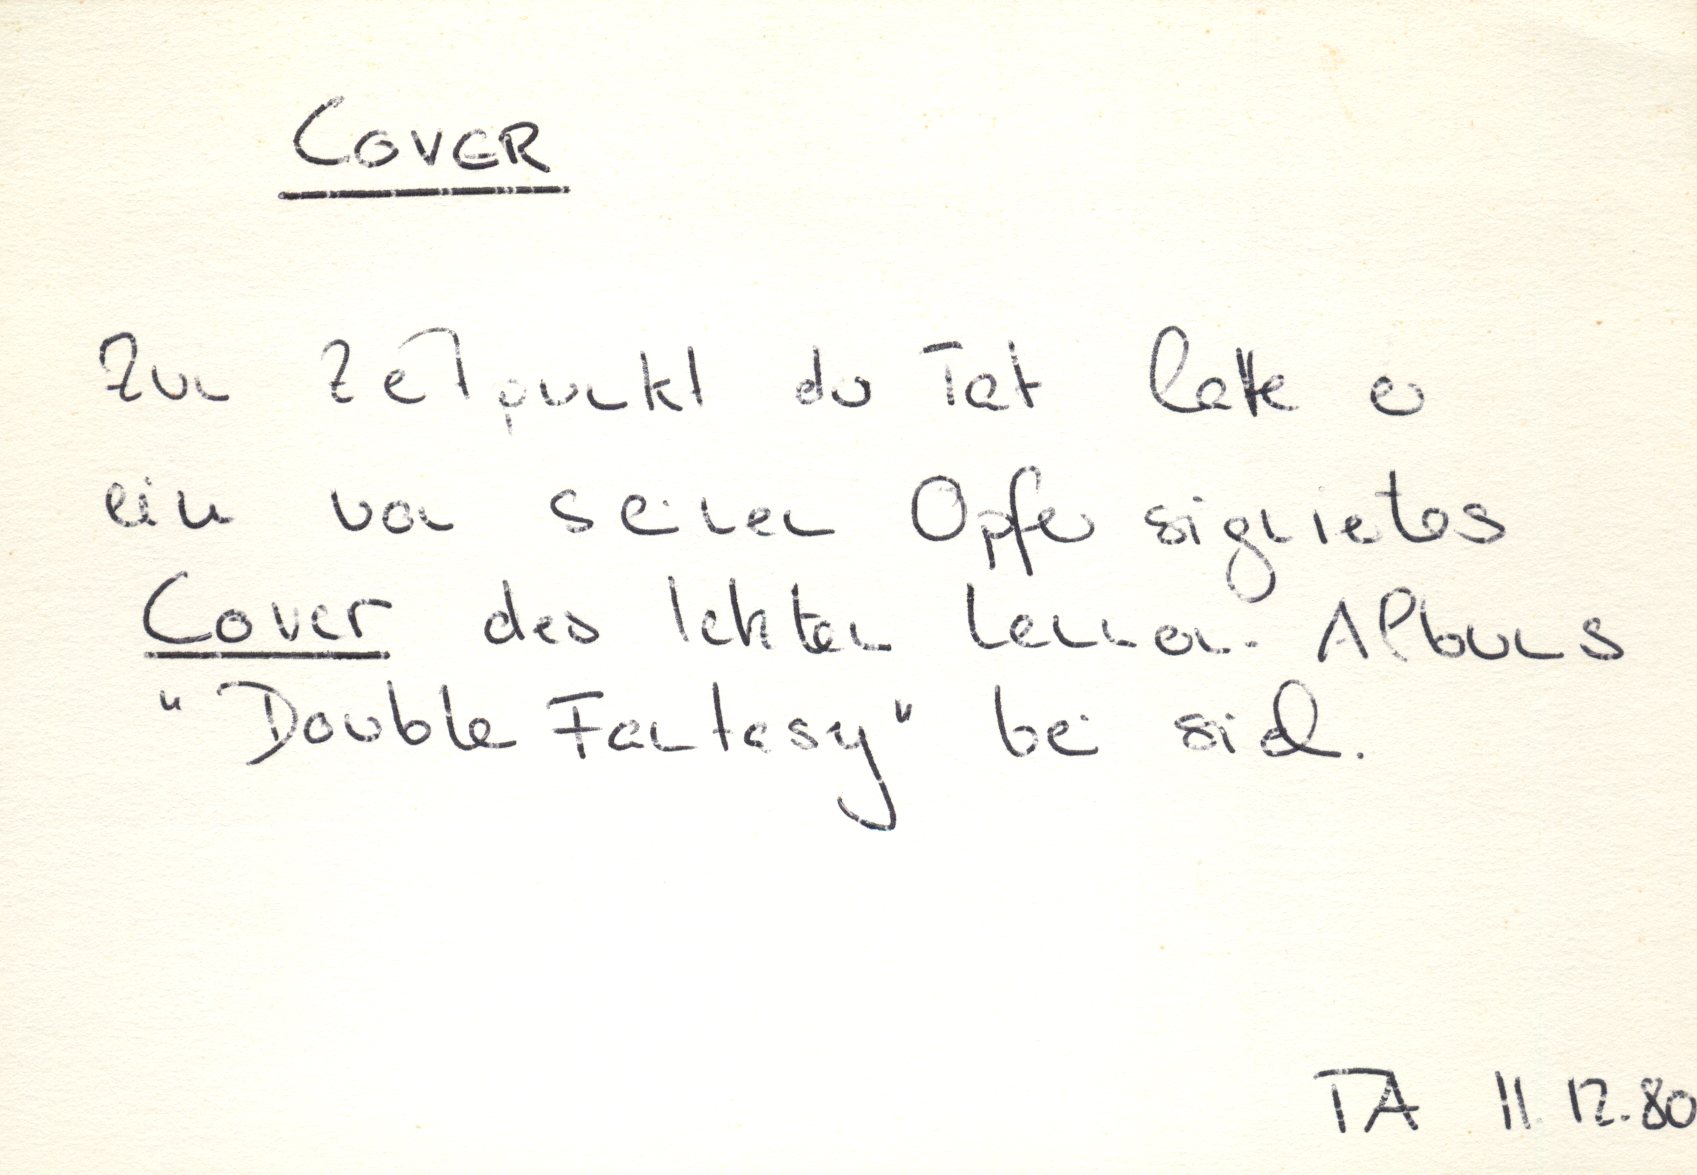 COVER
Zum Zeitpunkt der Tat hatte er
ein von seinem Opfer signiertes
Cover des letzten Lennon-Albums
"Double Fantasy" bei sich.
TA 11.12.80